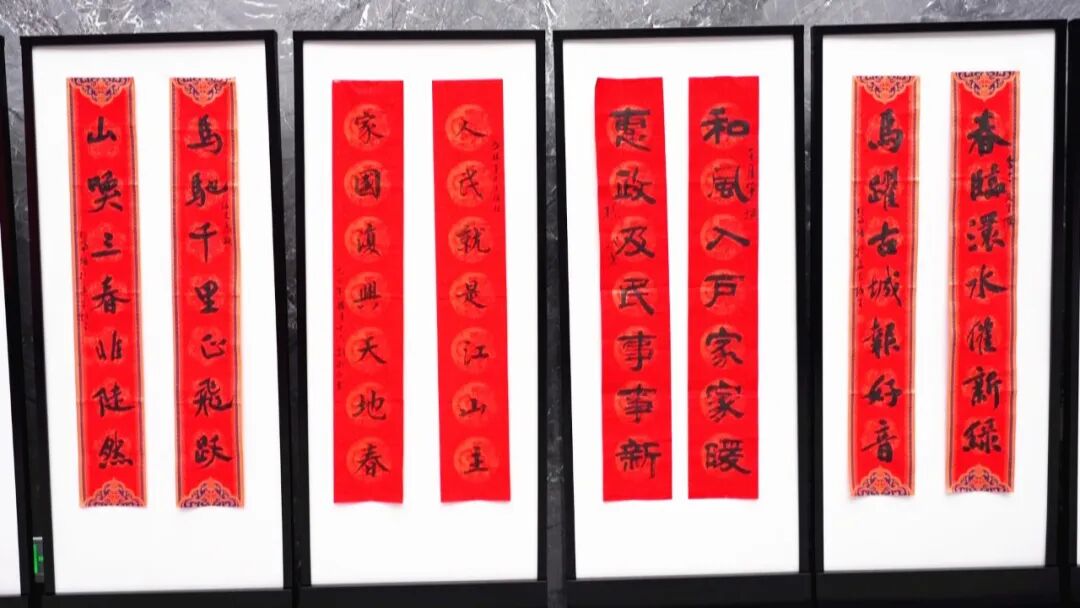 春臨澴水催新綠
馬躍古城報好音
和風入戶家家暖
惠政及民事事新
人民就是江山主
家國興天地春
馬馳千里正飛跃
山喚三春非陡然